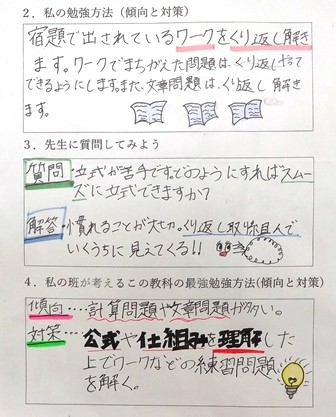 2．私の勉強方法（傾向と対策）
宿題で出されているワークをくり返し解き
ます。ワークでまちがえた問題は、くり返しやって
できるようにします。また、文章問題は、くり返し解き
ます。
3．先生に質問してみよう
質問・立式が苦手です。どのようにすればスムー
ズに立式できますか？
解答・慣れることが大切。くり返し取り組んで
いくうちに見えてくる!!
4．私の班が考えるこの教科の最強勉強方法(傾向と対策)
傾向・・・・計算問題や文章問題が多い。
対策・・・・公式や仕組みを理解した
上でワークなどの練習問題
を解く。